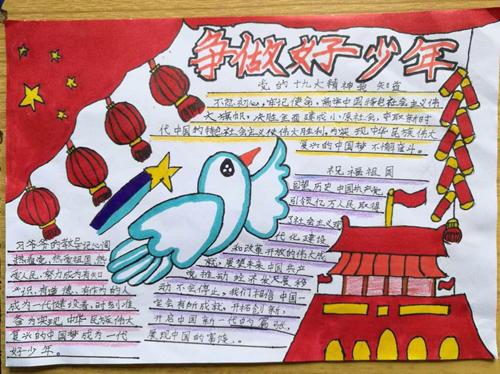 争做好少年
党的十九大精神我知道
不忘初心,牢记使命,高举中国特色社会主义伟
大旗帜,决胜全面建成小康社会,夺取新时
代中国特色社会主义伟大胜利,为实现中华民族伟大
复兴的中国梦不懈奋斗。
祝福祖国
回望历史中国共产党
引领亿万人民取得
了社会主义现
代化建设
和改革开放的伟大成
就,展望未来中国共产
党推动经济发展移
动不会停止,我们相信中国一
定会有新成就,开拓创新,
开启中国新一代的篇张,
发现中国的富饶..
习爷爷的教导记心间
热爱党,热爱祖国,热
爱人民,努力成为有知
识,有道德,有作为的人
成为一代建设者,时刻准
备为实现中华民族伟大
复兴的中国梦成为一代
好少年。